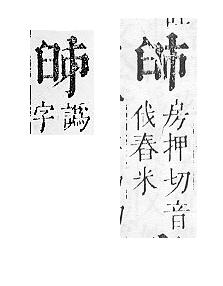 房押切音
伐舂米
譌
字